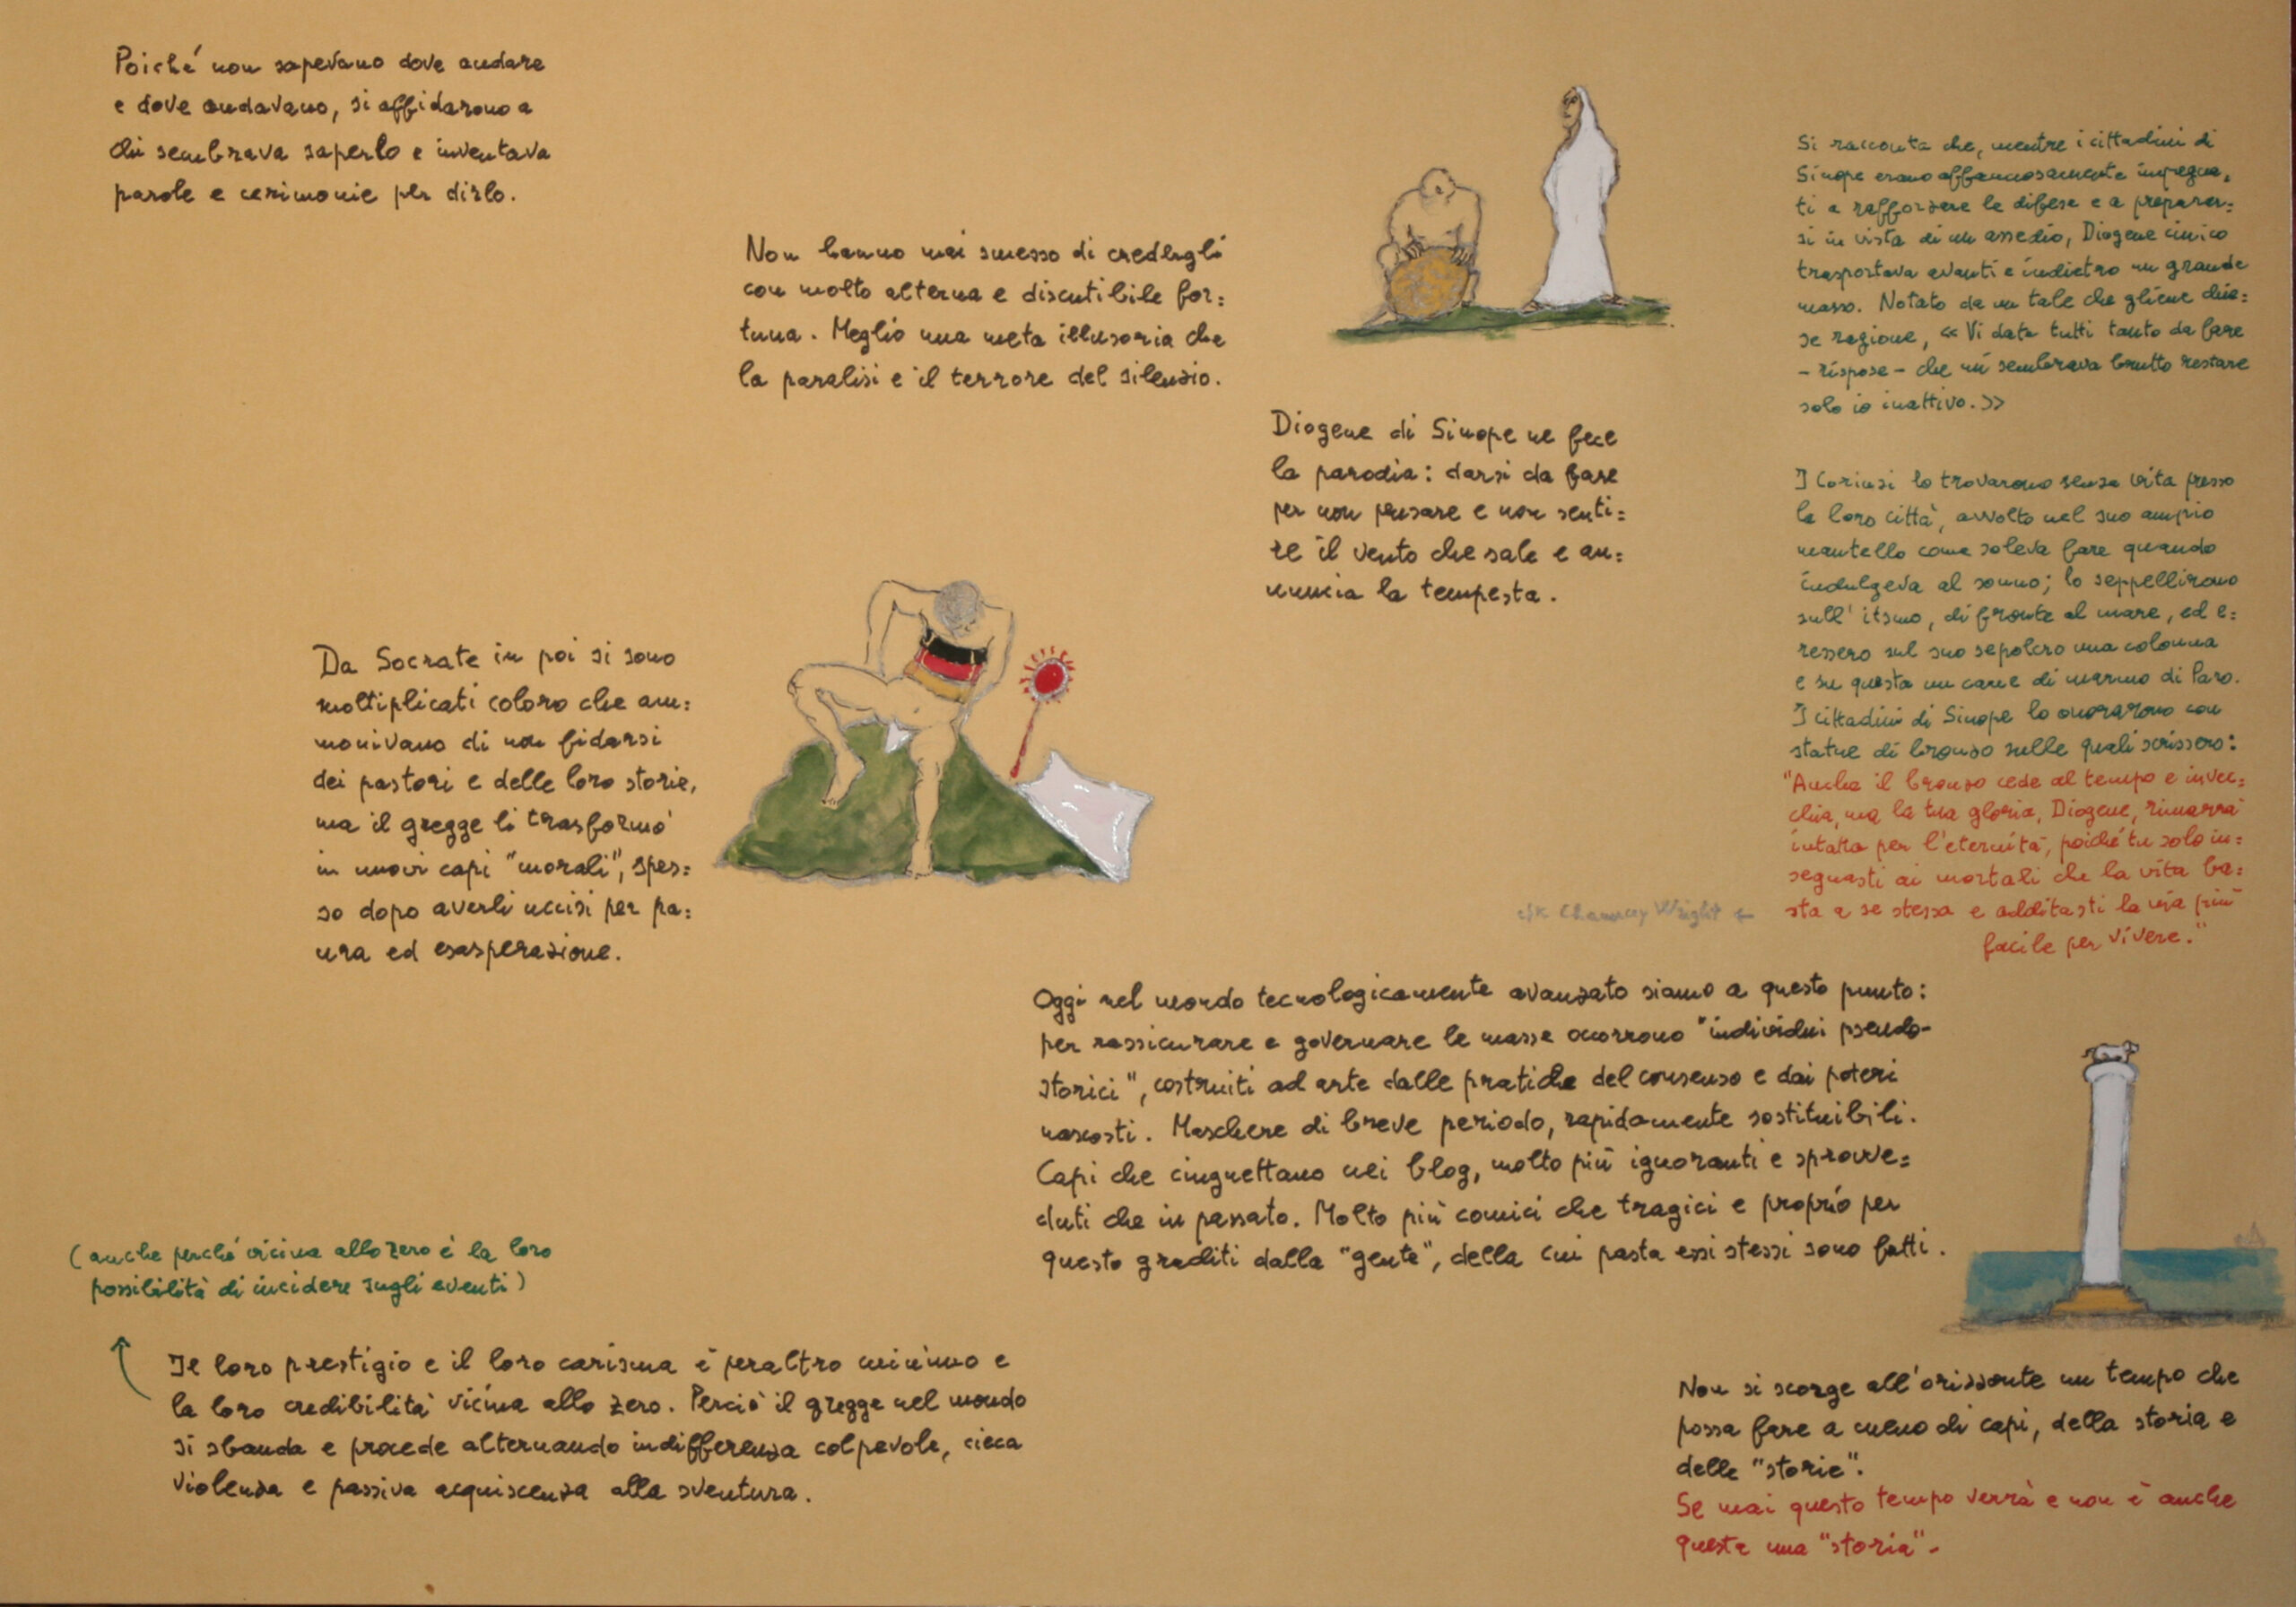 Poiché non sapevano dove andare
e dove andavano, si affidarono a
chi sembrava saperlo e inventava
parole e cerimonie per dirlo.
Non hanno mai smesso di credergli
con molto alterna e discutibile for=
tuna. Meglio una meta illusoria che
la paralisi e il terrore del silenzio.
Diogene di Sinope ne fece
la parodia: darsi da fare
per non pensare e non senti=
re il vento che sale e an=
nuncia la tempesta.
Si racconta che, mentre i cittadini di
Sinope erano affannosamente impegna=
ti a rafforzare le difese e a preparar=
si in vista di un assedio, Diogene cinico
trasportava avanti e indietro un grande
masso. Notato da un tale che gliene chie=
se ragione, « Vi date tutti tanto da fare
- rispose - che mi sembrava brutto restare
solo io inattivo. »
I Corinzi lo trovarono senza vita presso
la loro città, avvolto nel suo ampio
mantello come soleva fare quando
indulgeva al sonno; lo seppellirono
sull' itsmo, di fronte al mare, ed e=
ressero sul suo sepolcro una colonna
e su questa un cane di marmo di Paro.
I cittadini di Sinope lo onorarono con
statue di bronzo sulle quali scrissero:
"Anche il bronzo cede al tempo e invec=
chia, ma la tua gloria, Diogene, rimarrà
intatta per l'eternità, poiché tu solo in=
segnasti ai mortali che la vita ba=
sta a se stessa e additasti la via più
facile per vivere."
c/r Chauncey Wright ←
Da Socrate in poi si sono
moltiplicati coloro che am=
monivano di non fidarsi
dei pastori e delle loro storie,
ma il gregge li trasformò
in nuovi capi "morali", spes=
so dopo averli uccisi per pa=
ura ed esasperazione.
Oggi nel mondo tecnologicamente avanzato siamo a questo punto:
per rassicurare e governare le masse occorrono "individui pseudo-
storici", costruiti ad arte dalle pratiche del consenso e dai poteri
nascosti. Maschere di breve periodo, rapidamente sostituibili.
Capi che cinguettano nei blog, molto più ignoranti e sprovve=
duti che in passato. Molto più comici che tragici e proprio per
questo graditi dalla "gente", della cui pasta essi stessi sono fatti.
(anche perché vicina allo zero è la loro
possibilità di incidere sugli eventi)
Il loro prestigio e il loro carisma è peraltro minimo e
la loro credibilità vicina allo zero. Perciò il gregge nel mondo
si sbanda e procede alternando indifferenza colpevole, cieca
violenza e passiva acquiscenza alla sventura.
Non si scorge all'orizzonte un tempo che
possa fare a meno di capi, della storia e
delle "storie".
Se mai questo tempo verrà e non è anche
questa una "storia".